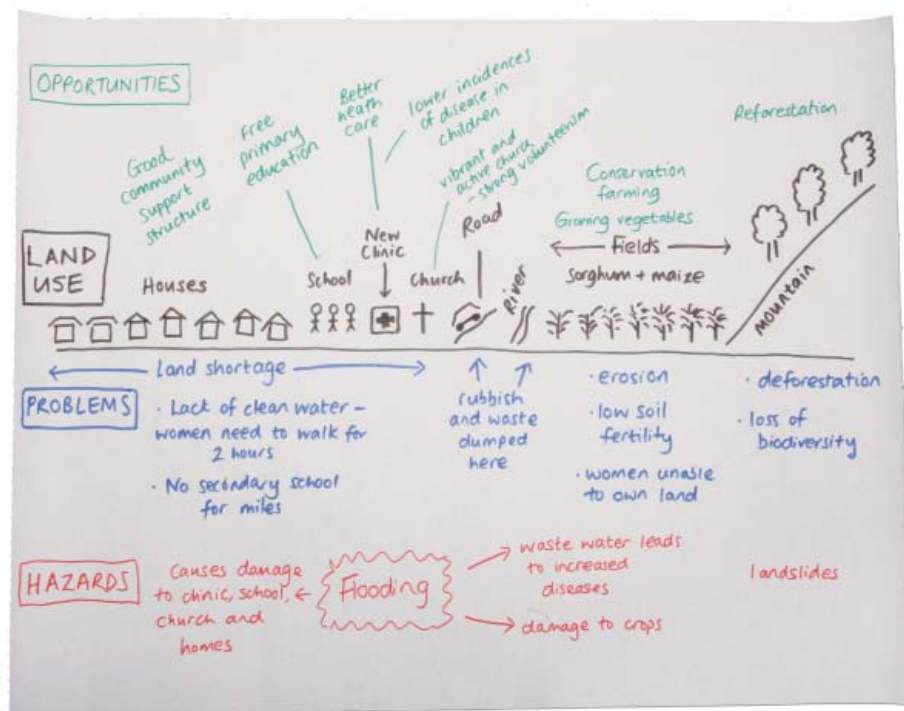 OPPORTUNITIES
Good
community
support
structure
Free
primary
education
Better
heath
care
lower incidences
of disease in
children
vibrant and
active church
- strong volunteerism
Conservation
farming
Growing vegetables
Reforestation
LAND
USE
Houses
School
New
Clinic
Church
Road
River
Fields
Sorghum + maize
mountain
PROBLEMS
Land shortage
· Lack of clean water -
women need to walk for
2 hours
· No secondary school
for miles
rubbish
and waste
dumped
here
· erosion
· low soil
fertility
· women unable
to own land
· deforestation
· loss of
biodiversity
HAZARDS
Causes damage
to clinic, school,
church and
homes
Flooding
waste water leads
to increased
diseases
damage to crops
landslides